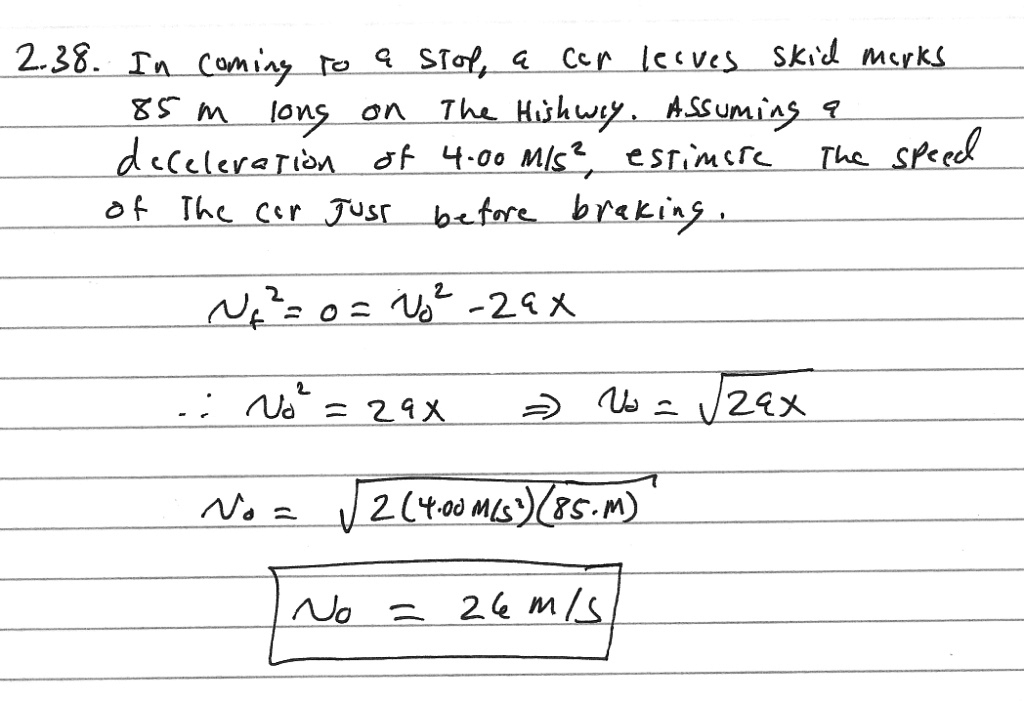 2.38. In coming to a stop, a car leaves skid marks
85 m long on the Highway. Assuming a
deceleration of 4.00 m/s², estimate the speed
of the car just before braking.
v_f² = 0 = v₀² - 2ax
∴ v₀² = 2ax ⇒ v₀ = √2ax
v₀ = √2(4.00 m/s²)(85.m)
v₀ = 26 m/s